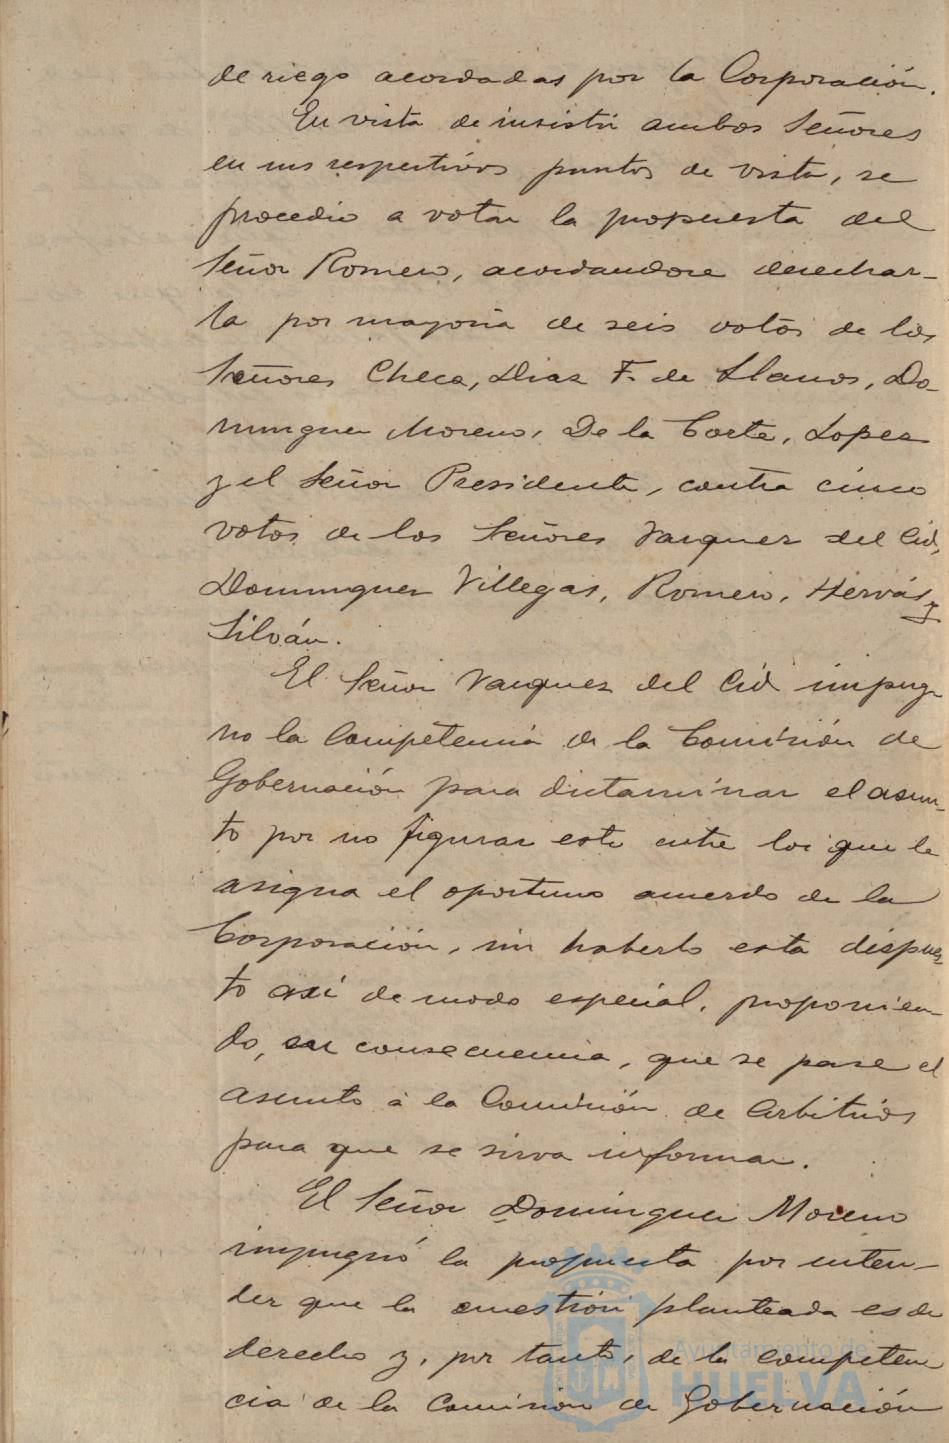 de riego acordadas por la Corporación.
En vista de insistir ambos Señores
en sus respectivos puntos de vista, se
procedio a votar la propuesta del
Señor Romero, acordandose desechar-
la por mayoria de seis votos de los
Señores Checa, Diaz F. de Llanos, Do-
minguez Moreno, De la Corte, Lopez
y el Señor Presidente, contra cinco
votos de los Señores Vazquez del Cid,
Dominguez Villegas, Romero, Hervás y
Silván.
El Señor Vazquez del Cid impug-
no la Competencia de la Comisión de
Gobernación para dictaminar el asun-
to por no figurar este entre los que le
asigna el oportuno acuerdo de la
Corporación, sin haberlo esta dispues-
to asi de modo especial, proponien-
do, en consecuencia, que se pase el
asunto á la Comisión de Arbitrios
para que se sirva informar.
El Señor Dominguez Moreno
impugnó la propuesta por enten-
der que la cuestión planteada es de
derecho y, por tanto, de la competen
cia de la Comisión de Gobernación
Ayuntamiento de
HUELVA